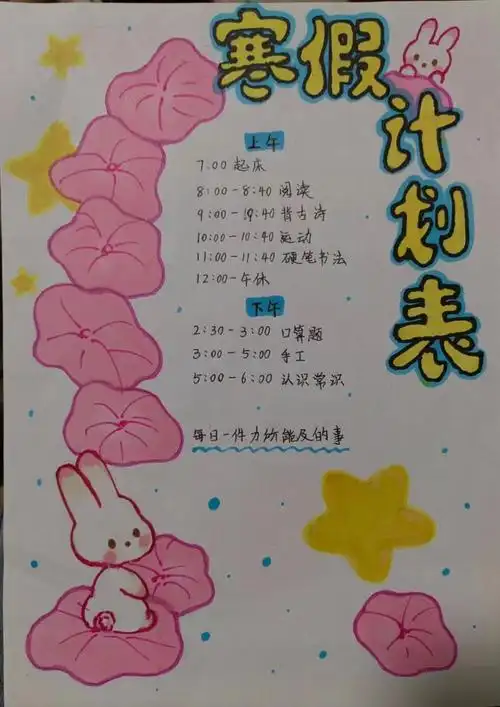 寒假计划表
上午
7:00 起床
8:00-8:40 阅读
9:00-19:40 背古诗
10:00-10:40 运动
11:00-11:40 硬笔书法
12:00-午休
下午
2:30-3:00 口算题
3:00-5:00 手工
5:00-6:00 认识常识
每日一件力所能及的事